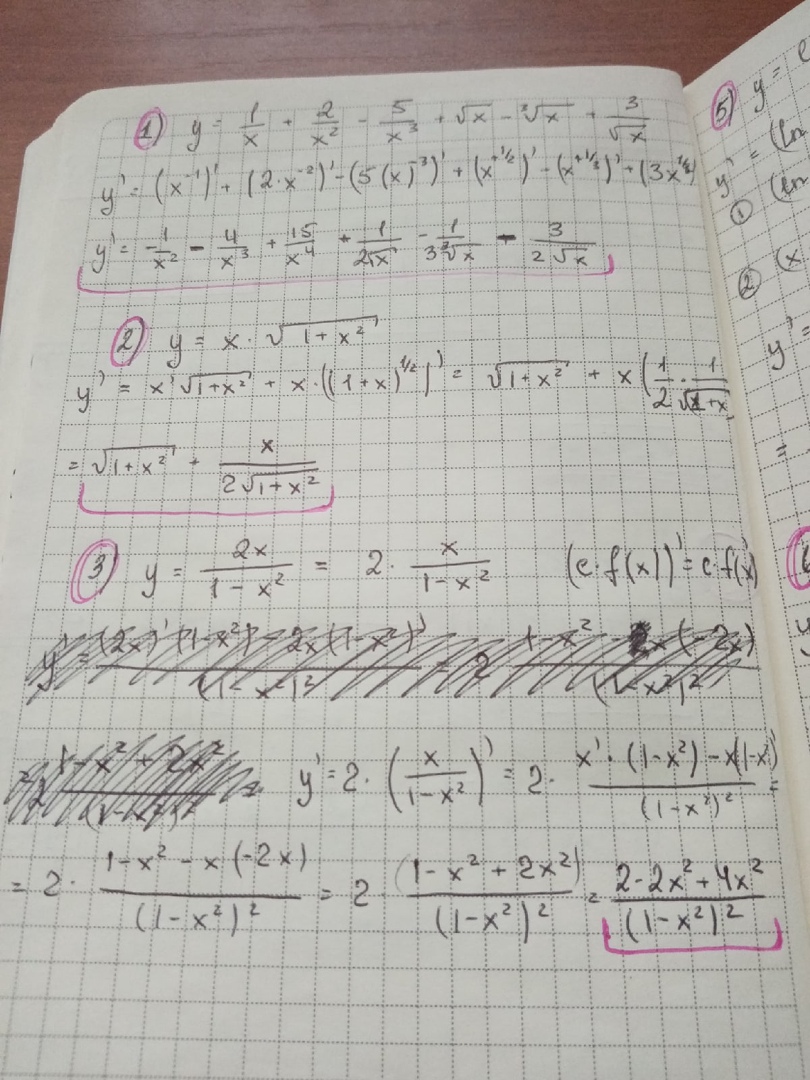 1) y = 1/x + 2/x² - 5/x³ + √x - ³√x + 3/√x
y' = (x⁻¹)' + (2·x⁻²)' - (5(x)⁻³)' + (x⁺¹/²)' - (x⁺¹/³)' + (3x¹/²)
y' = -1/x² - 4/x³ + 15/x⁴ + 1/2√x - 1/3³√x - 3/2√x
2) y = x · √1+x²
y' = x'√1+x² + x·((1+x)¹/²)' = √1+x² + x(1/2 · 1/√1+x
= √1+x² + x/2√1+x²
3) y = 2x/1-x² = 2 · x/1-x² (c·f(x))' = c·f(x)
y' = (2x)'(1-x²) - 2x(1-x²)'/(1-x²)² = 2 1-x² - x(-2x)/(1-x²)²
= 2 1-x²+2x²/(1-x²)² =
y' = 2·(x/1-x²)' = 2· x'·(1-x²)-x(1-x²)'/(1-x²)² =
= 2· 1-x²-x(-2x)/(1-x²)² = 2 (1-x²+2x²)/(1-x²)² = 2-2x²+4x²/(1-x²)²
5) y = e
y' = (ln
① (ln
② (x
y' =
=
y